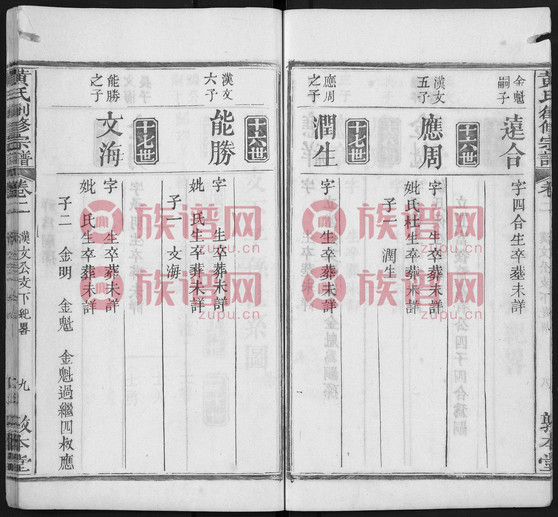 黃氏創修宗譜
卷一
敦本堂
金魁
嗣子
遠合
字四合生卒葬未詳
漢文
五子
十六世
應周
字 生卒葬未詳
妣氏杜生卒葬未詳
子一 潤生
應周
之子
十七世
潤生
漢文
六子
十六世
能勝
字 生卒葬未詳
妣 氏生卒葬未詳
子一 文海
能勝
之子
十七世
文海
字 生卒葬未詳
妣 氏生卒葬未詳
子二 金明 金魁 金魁過繼四叔應
黃氏創修宗譜
卷一
漢文公支下紀畧
九
敦本堂
族谱网
zupu.cn
族谱网
zupu.cn
族谱网
zupu.cn
族谱网
zupu.cn